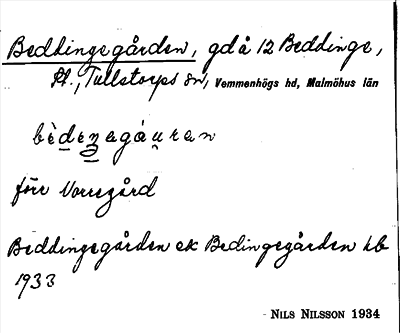 Beddingegården, gd å 12 Beddinge,
St., Tullstorps sn, Vemmenhögs hd, Malmöhus län
bèdeŋagáu̯ran
förr Vorregård
Beddingegården ek Bedingegården kb
1933
NILS NILSSON 1934